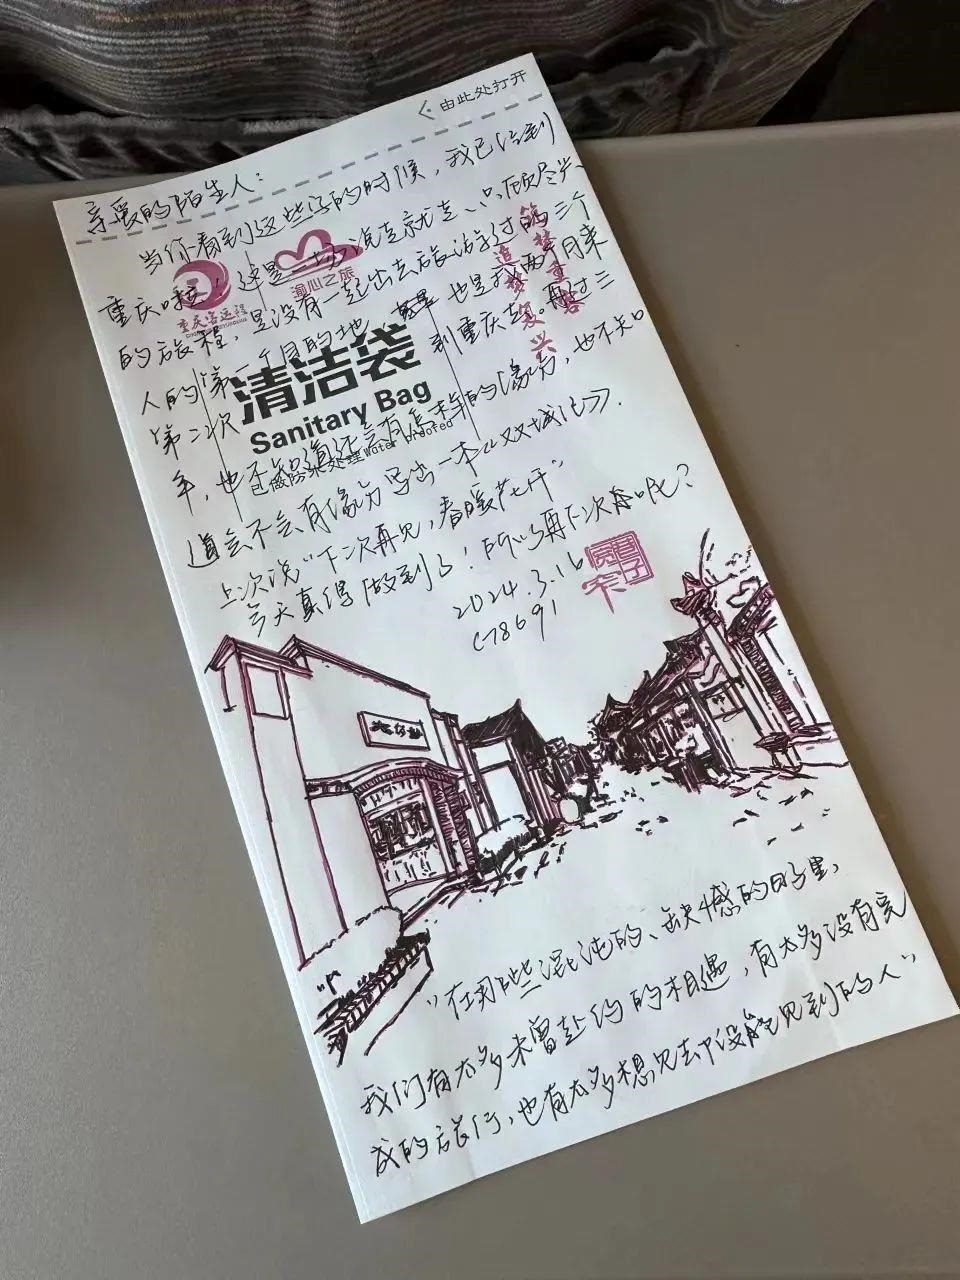 由此处打开
亲爱的陌生人：
当你看到这些字的时候，我已经到
重庆啦，这是一场说走就走、只顾尽兴
的旅程，是没有一起出去旅游过的三个
人的第一个目的地 也是我两个月来
第二次到重庆 。再过三
年，也不知道还会有 的缘分，也不知
道会不会有缘分写出一本《双城记》.
上次说“下次再见，春暖花开”
今天真得做到了！所以再下次 呢？
2024.3.16
C78691
重庆客运段
渝心之旅
清洁袋
Sanitary Bag
已做防渗处理 Water proofed
追梦复兴
“在那些混沌的、缺憾的日子里，
我们有太多未曾赴约的相遇，有太多没有完
成的旅行，也有太多想见却没能见到的人”